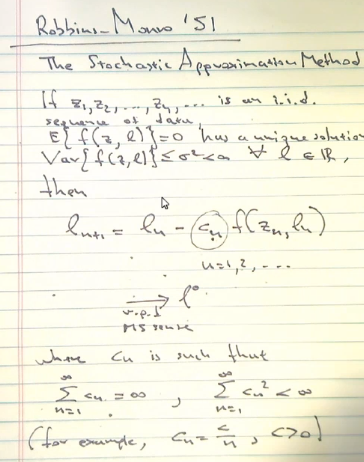 Robbins-Monro '51
The Stochastic Approximation Method
If z₁, z₂, ..., zₙ, ... is an i.i.d.
sequence of data,
E{f(z, l)}=0 has a unique solution
Var{f(z,l)} ≤ σ² < ∞ ∀ l ∈ ℝ,
then
lₙ₊₁ = lₙ - cₙ f(zₙ, lₙ)
n=1,2,...
→ l°
w.p.1
MS sense
where cₙ is such that
∑ₙ₌₁^∞ cₙ = ∞ , ∑ₙ₌₁^∞ cₙ² < ∞
(for example, cₙ = c/n , c>0)